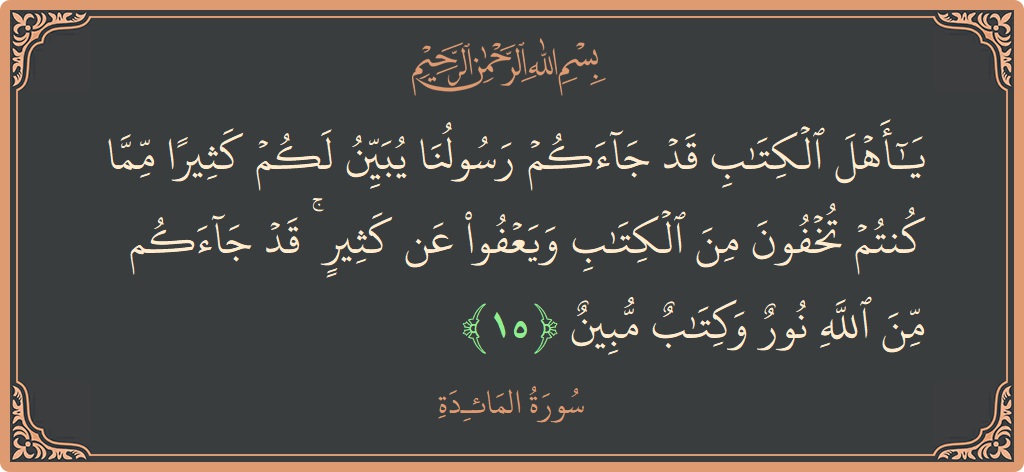 بِسْمِ اللَّهِ الرَّحْمَٰنِ الرَّحِيمِ
يَـٰٓأَهْلَ ٱلْكِتَـٰبِ قَدْ جَآءَكُمْ رَسُولُنَا يُبَيِّنُ لَكُمْ كَثِيرًا مِّمَّا
كُنتُمْ تُخْفُونَ مِنَ ٱلْكِتَـٰبِ وَيَعْفُوا۟ عَن كَثِيرٍ ۚ قَدْ جَآءَكُم
مِّنَ ٱللَّهِ نُورٌ وَكِتَـٰبٌ مُّبِينٌ ﴿١٥﴾
سُورَةُ المَائـِدَةِ